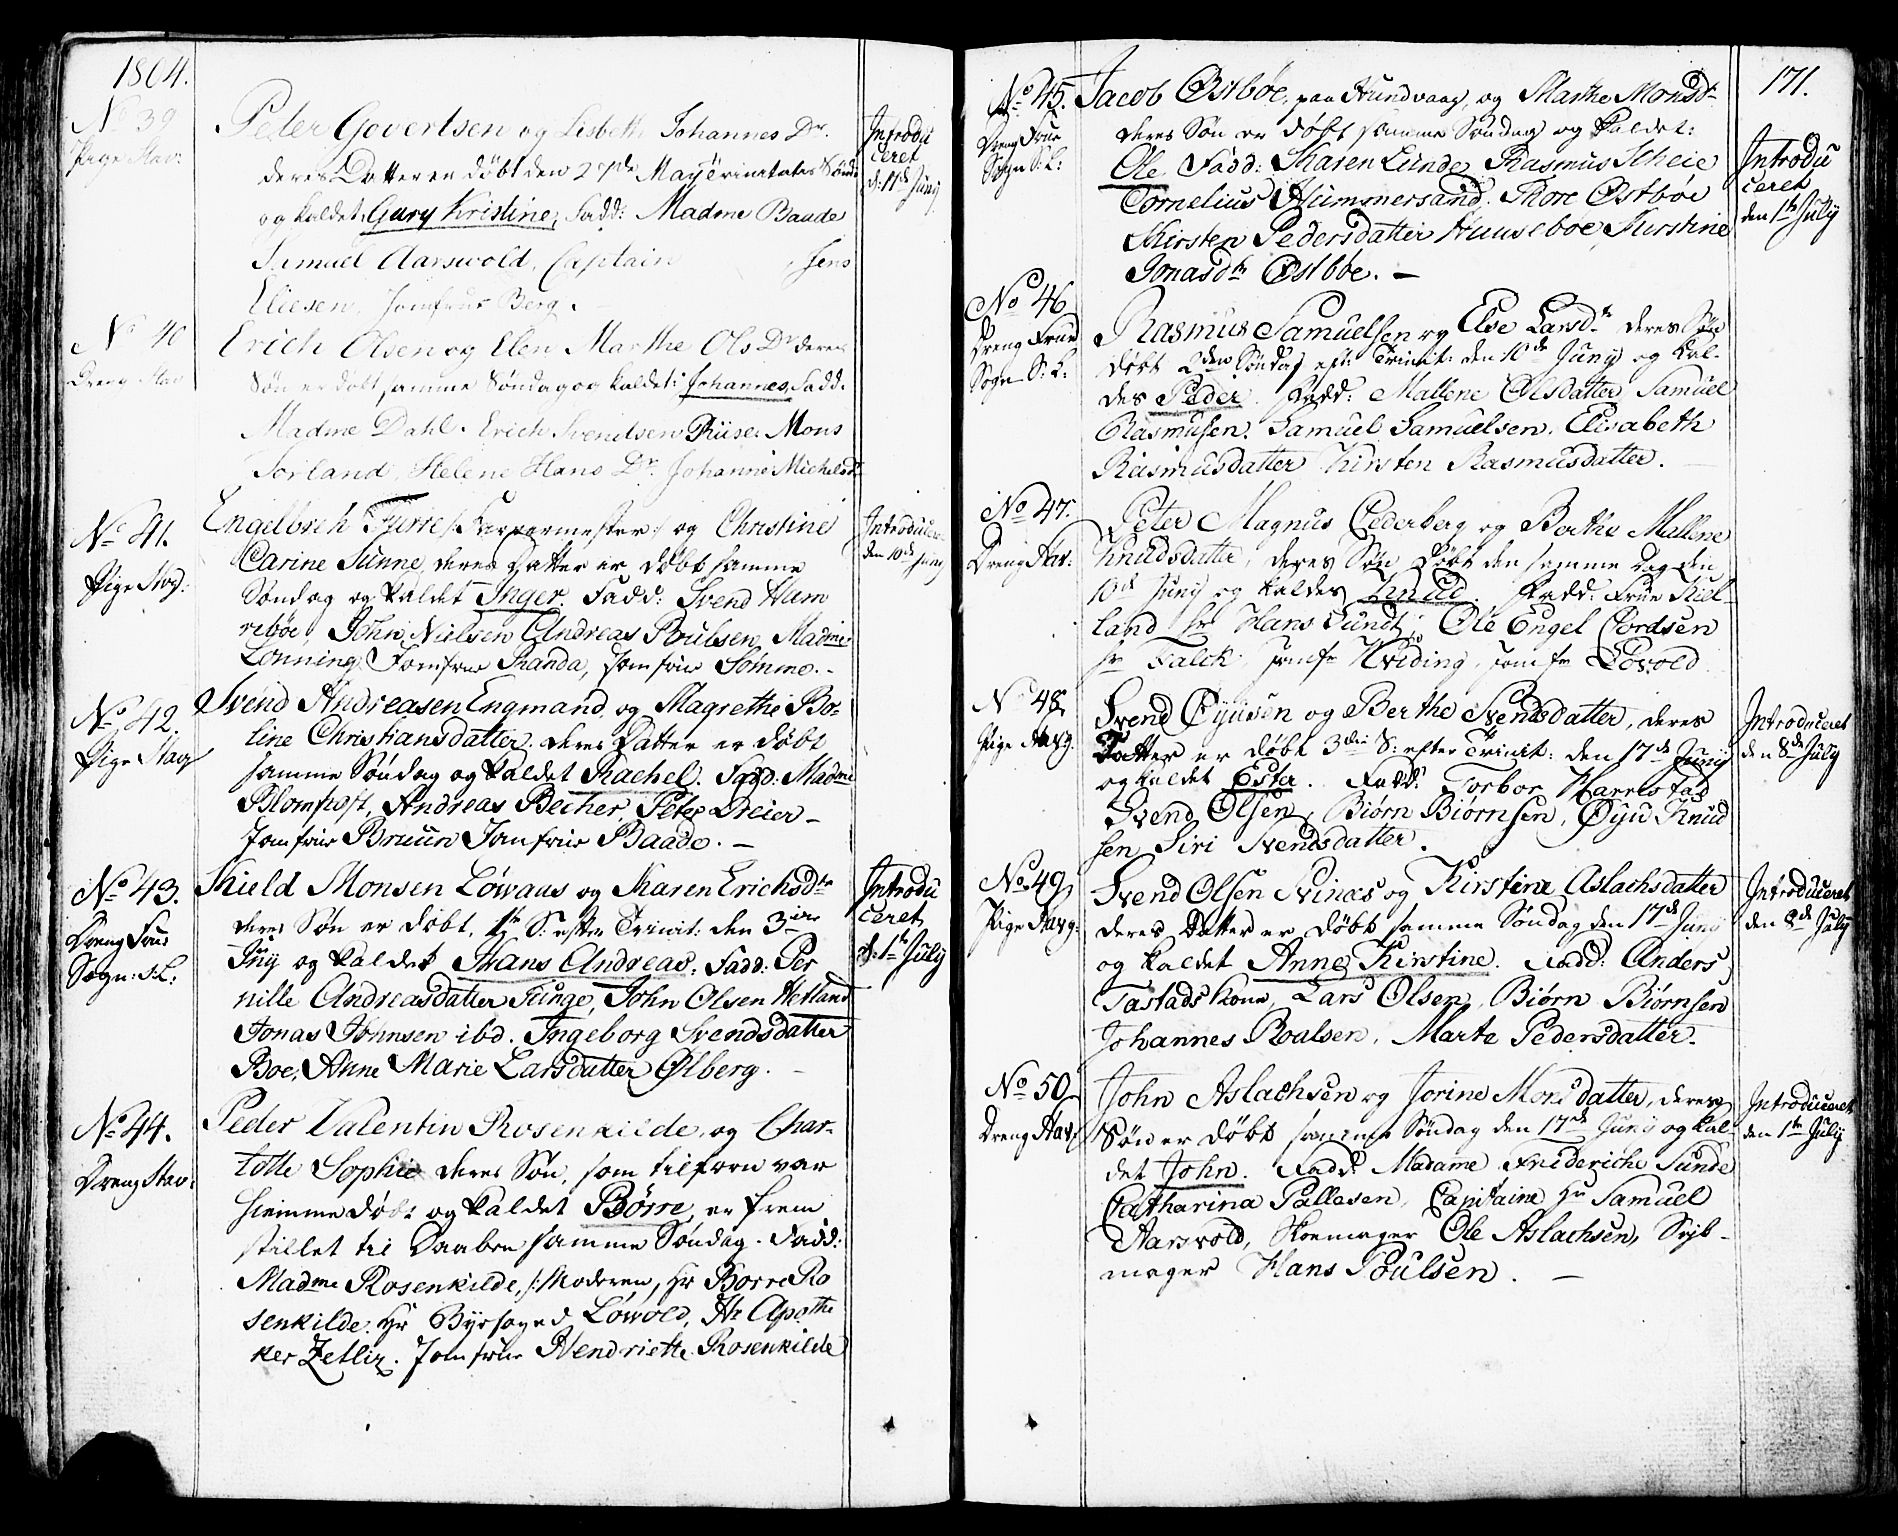 1804.
No 39
Pige Stav:
Peder Govertsen og Lisbeth Johannes Dr.
deres Datter er døbt den 27de May Trinitates Sønd:
og kaldet Gury Kristine, Fadd: Madme Baade
Samuel Aarswold, Captain Jens
Eliesen, Jomfrue Berg.
Introdu
ceret
d: 11te Juny
No 40
Dreng Stav
Erich Olsen og Elen Marthe Ols Dr deres
Søn er døbt samme Søndag og kaldet: Johannes Fadd:
Madme Dahl. Erich Svendsen Riise. Mons
Sorland, Helene Hans Dr. Johanne Michelsdr
No 41.
Pige Stav:
Engelbreh Furre /: Tarpermester :/ og Christine
Carine Sunne, deres Datter er døbt samme
Søndag og kaldet Inger. Fadd: Svend Ham
rebøe, John Nielsen Andreas Poulsen, Madme
Lønning, Jomfrue Randa, Jomfrue Sømme.-
Introducer
den 10de Juny
No 42.
Pige Stav
Svend Andreasen Engmand og Magrethe Bo-
line Christiansdatter. deres Datter er døbt
samme Søndag og kaldet Rachel. Fadd: Madme
Blompost, Andreas Becher, Peter Dreier -
Jomfrue Bruun Jomfrue Baade. -
No 43.
Dreng Frue
Sogn: S:L:
Skield Monsen Løwaas og Karen Erichsdtr
deres Søn er døbt, 1te S: efter Trinit: den 3die
Juny og kaldet Hans Andreas. Fadd: Per
nille Andreasdatter Tunge, John Olsen Hetland
Jonas Johnsen ibd. Ingeborg Svendsdatter
Boe, Anne Marie Larsdatter Ølberg. -
Introdu
ceret
d: 1te July
No 44.
Dreng Stav:
Peder Valentin Rosenkilde, og Char-
lotte Sophie deres Søn, som tilforn var
hiemme døbt og kaldet Børre, er frem
stillet til Daaben samme Søndag. Fadd:
Madme Rosenkilde, /: Moderen, Hr Borre Ro
senkilde. Hr Byefoged Løwold, Hr Apothe
ker Zetliz. Jomfrue Hendriette Rosenkilde
171.
No 45.
Dreng Frue
Sogn S:L:
Jacob Østbøe, paa Hundvaag, og Marthe Monsdr
deres Søn er døbt samme Søndag og kaldet:
Ole. Fadd: Karen Lunde, Rasmus Scheie
Cornelius Hummersand. Thore Østbøe
Kirsten Pedersdatter Huusebøe, Kirstine
Jonasdtr Østbøe. -
Introdu
ceret
den 1te July
No 46
Dreng Frue
Sogn S:L:
Rasmus Samuelsen og Else Larsdr deres Søn
døbt 2den Søndag eft: Trinit: den 10de Juny og kal-
des Peder. Fadd: Mallene Olsdatter Samuel
Rasmusen. Samuel Samuelsen. Elisabeth
Rasmusdatter Kirsten Rasmusdatter.
No 47.
Dreng Stav:
Peter Magnus Cederberg og Berthe Mallene
Knudsdatter, deres Søn døbt den samme Dag den
10de Juny og kaldes Knud. Fadd: Frue Kiel-
land Hr Hans Sundt, Ole Engel Cordsen
Hr Falck, Jomfr Hviding, Jomfr Løvold
No 48
Pige Stavg.
Svend Øyusen og Berthe Svendsdatter, deres
Datter er døbt 3die S: efter Trinit: den 17de Juny
og kaldet Ester. Fadd: Torbor Harrestad
Svend Olsen, Biørn Biørnsen, Øyu Knud
sen Siri Svendsdatter.
Introduceret
den 8de July
No 49
Pige Stavg:
Svend Olsen Svinæs og Kirstine Aslachsdatter
deres Datter er døbt samme Søndag den 17de Juny
og kaldet Anne Kirstine. Fadd: Anders
Tastads kone, Lars Olsen, Biørn Biørnsen
Johannes Roalsen, Marte Pedersdatter.
Introduceret
den 8de July
No 50
Dreng Stav:
John Aslachsen og Jorine Monsdatter, deres
Søn er døbt samme Søndag den 17de Juny og kal-
det John. Fadd: Madame Friderische Sunde
Catharina Pallesen, Capitaine Hr Samuel
Aarsvold, Skomager Ole Aslachsen, Seyl-
mager Hans Poulsen. -
Introduceret
den 1te July